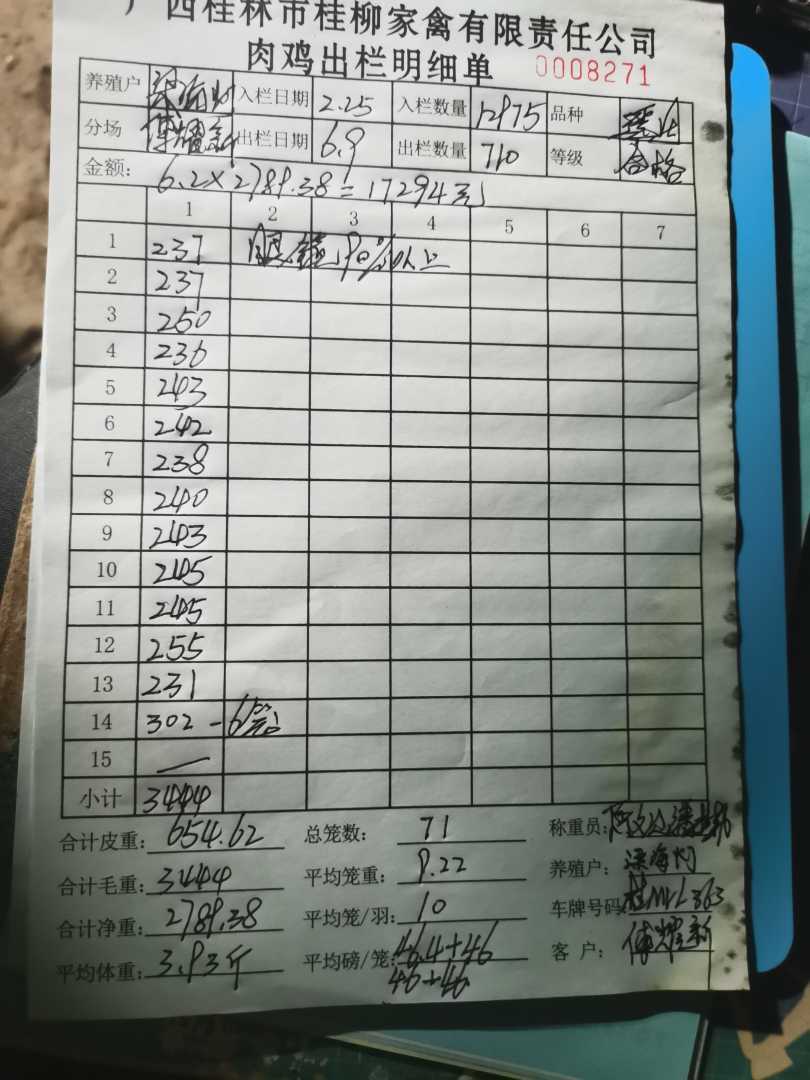 广西桂林市桂柳家禽有限责任公司
肉鸡出栏明细单 0008271
养殖户 入栏日期 2.25 入栏数量 12975 品种
分场 傅耀新 出栏日期 6.9 出栏数量 710 等级 合格
金额: 6.2×2789.38=17294元
1 2 3 4 5 6 7
1 237 眼镜90%以上
2 237
3 250
4 236
5 243
6 242
7 238
8 240
9 243
10 245
11 245
12 255
13 231
14 302 -6笼
15 —
小计 3444
合计皮重: 654.62 总笼数: 71 称重员:
合计毛重: 3444 平均笼重: 9.22 养殖户:
合计净重: 2789.38 平均笼/羽: 10 车牌号码:
平均体重: 3.93斤 平均磅/笼: 46.4+46 客户: 傅耀新
46+46